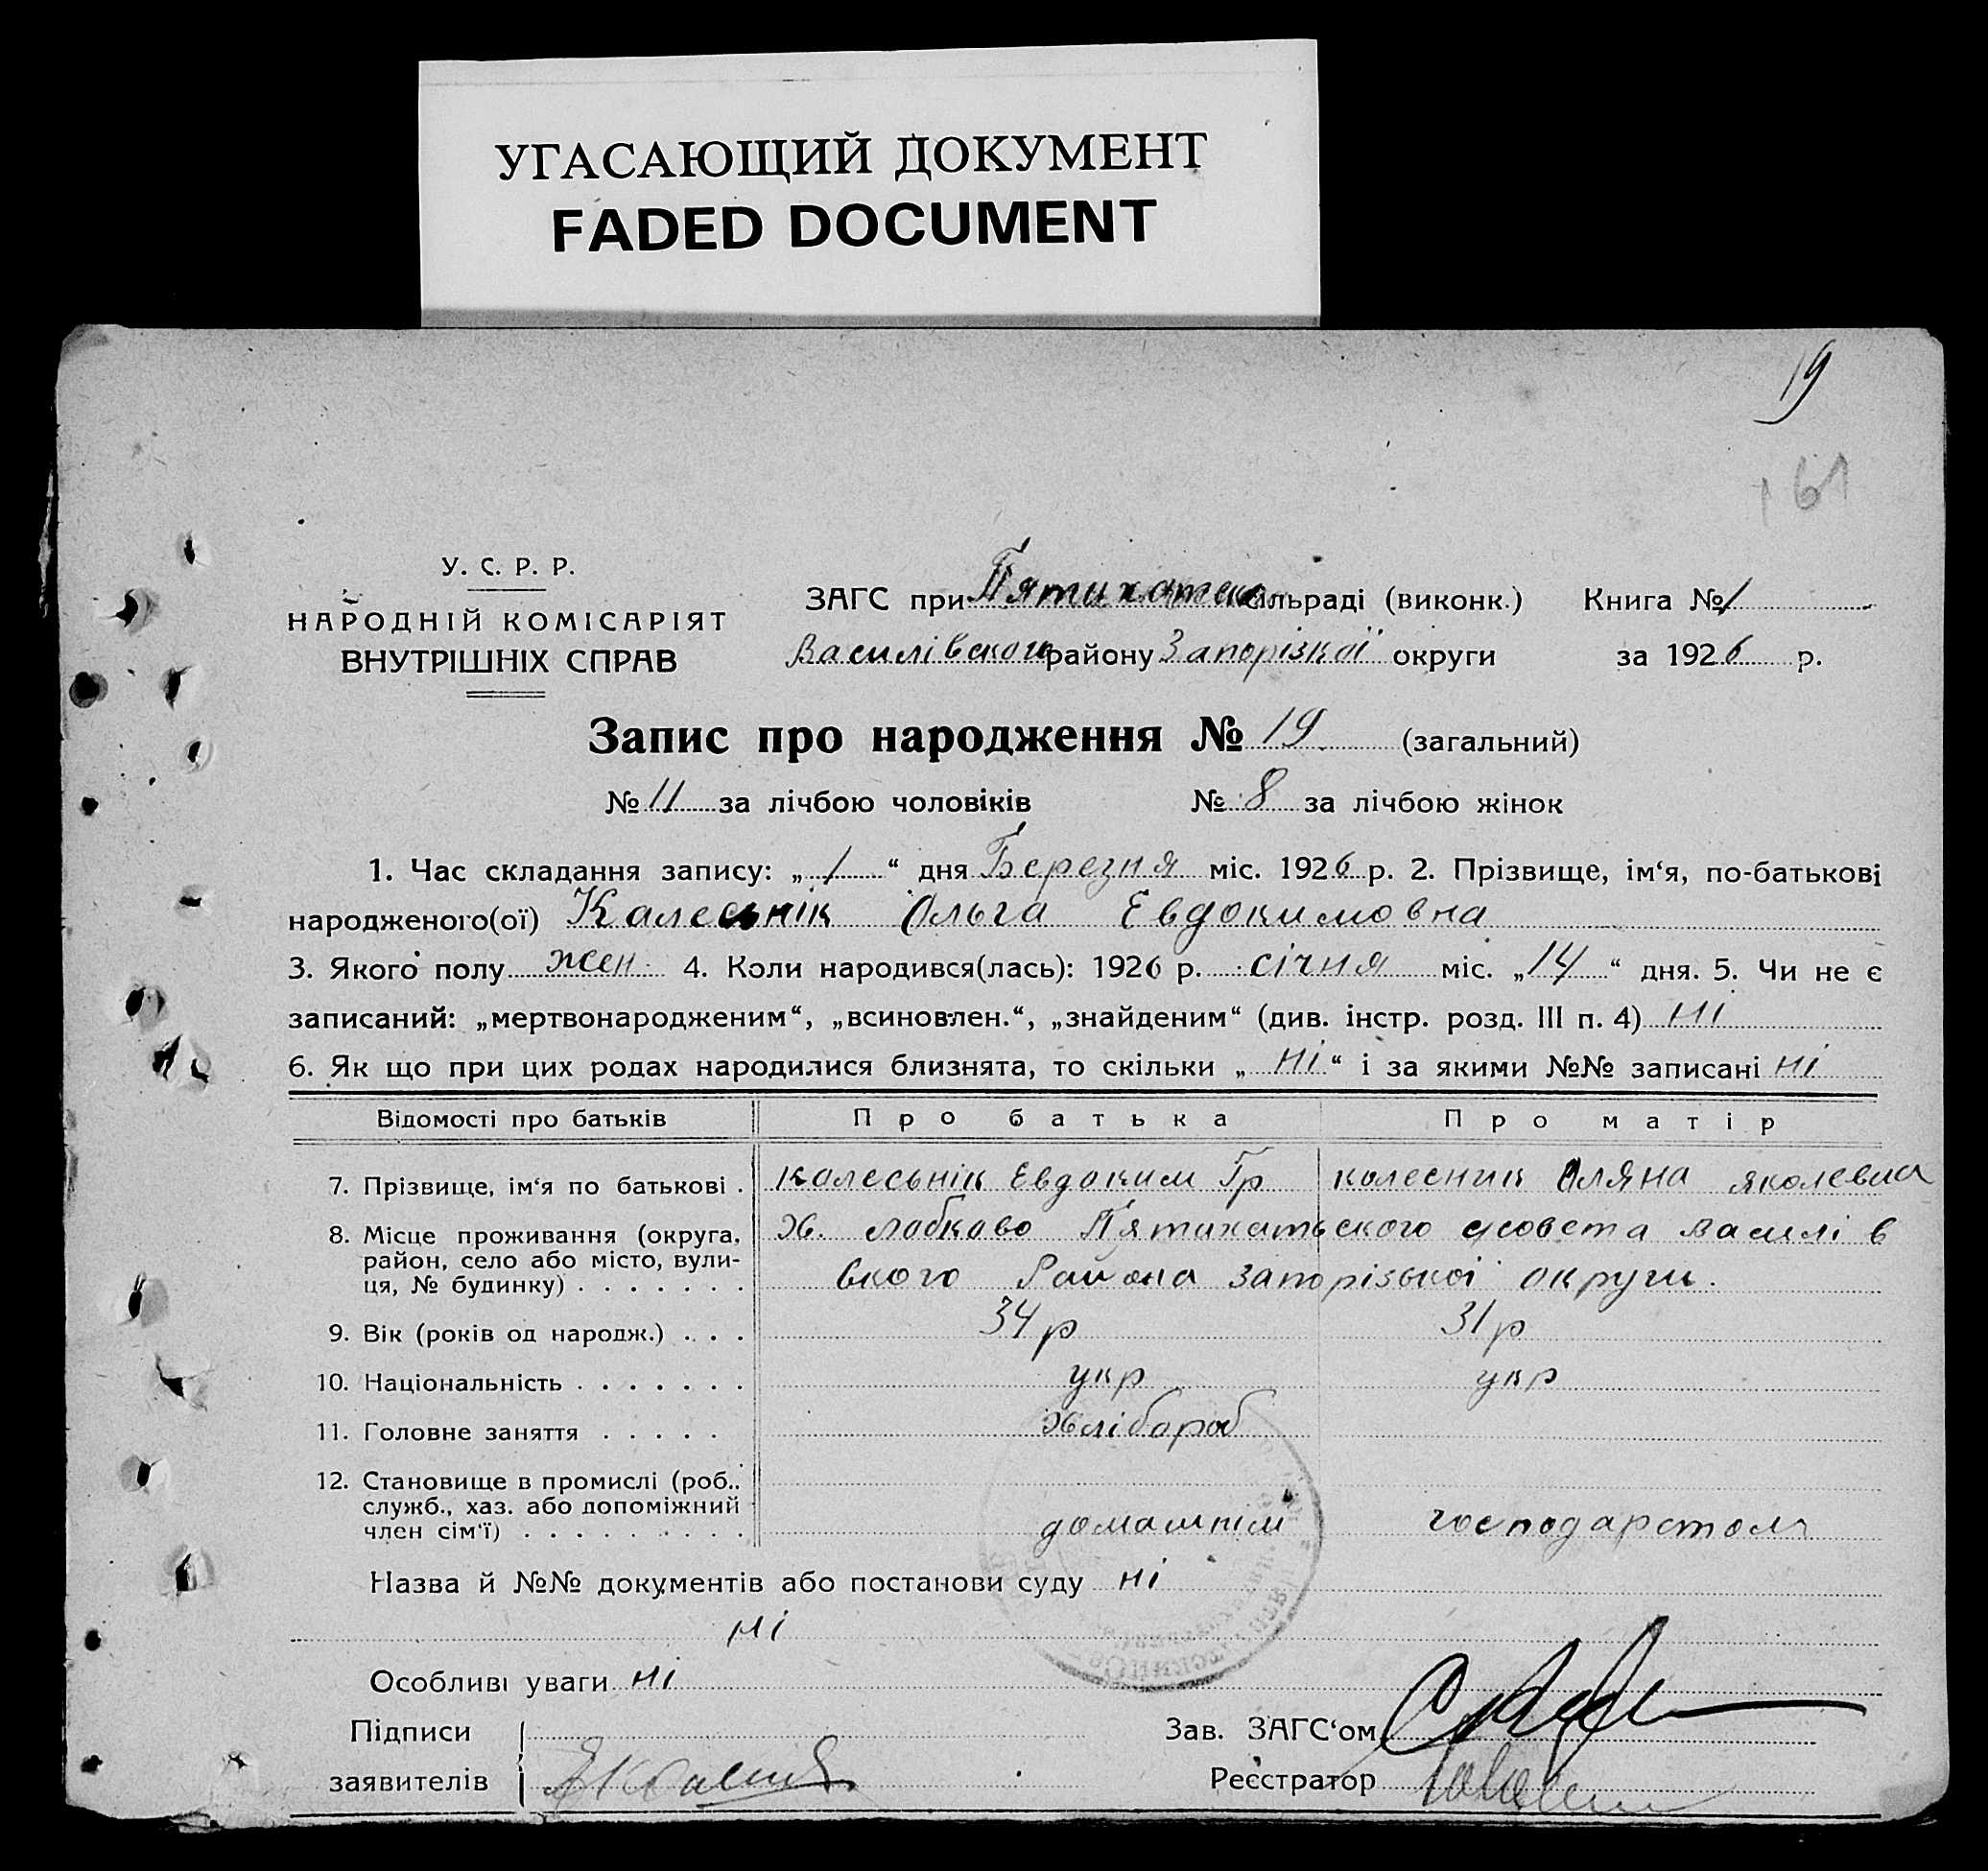 УГАСАЮЩИЙ ДОКУМЕНТ
FADED DOCUMENT
19
161
У. С. Р. Р.
НАРОДНІЙ КОМІСАРІЯТ
ВНУТРІШНІХ СПРАВ
ЗАГС при Пятихатско сільраді (виконк.) Книга № 1
Василівского району Запорізкої округи за 1926 р.
Запис про народження № 19 (загальний)
№ 11 за лічбою чоловіків № 8 за лічбою жінок
1. Час складання запису: „1“ дня Березня міс. 1926 р. 2. Прізвище, ім‘я, по-батькові
народженого(ої) Калесьнік Ольга Евдокимовна
3. Якого полу жен. 4. Коли народився(лась): 1926 р. січня міс. „14“ дня. 5. Чи не є
записаний: „мертвонародженим“, „всиновлен.“, „знайденим“ (див. інстр. розд. III п. 4) ні
6. Як що при цих родах народилися близнята, то скільки „ні“ і за якими №№ записані ні
Відомості про батьків Про батька Про матір
7. Прізвище, ім‘я по батькові . Калесьнік Евдоким Гр колесник Оляна яколевна
8. Місце проживання (округа, район, село або місто, вулиця, № будинку) . . . . . . . х. лобково Пятихатьского с/совета Василів
ского Района Запорізької округи.
9. Вік (років од народж.) . . . 34 р 31 р
10. Національність . . . . . . . укр укр
11. Головне заняття . . . . . хлібороб
12. Становище в промислі (роб.. служб., хаз. або допоміжний член сім‘ї) . . . . . . . . . домашнім господарстом
Назва й №№ документів або постанови суду ні
ні
Особливі уваги ні
Підписи
заявителів
Зав. ЗАГС‘ом
Реєстратор